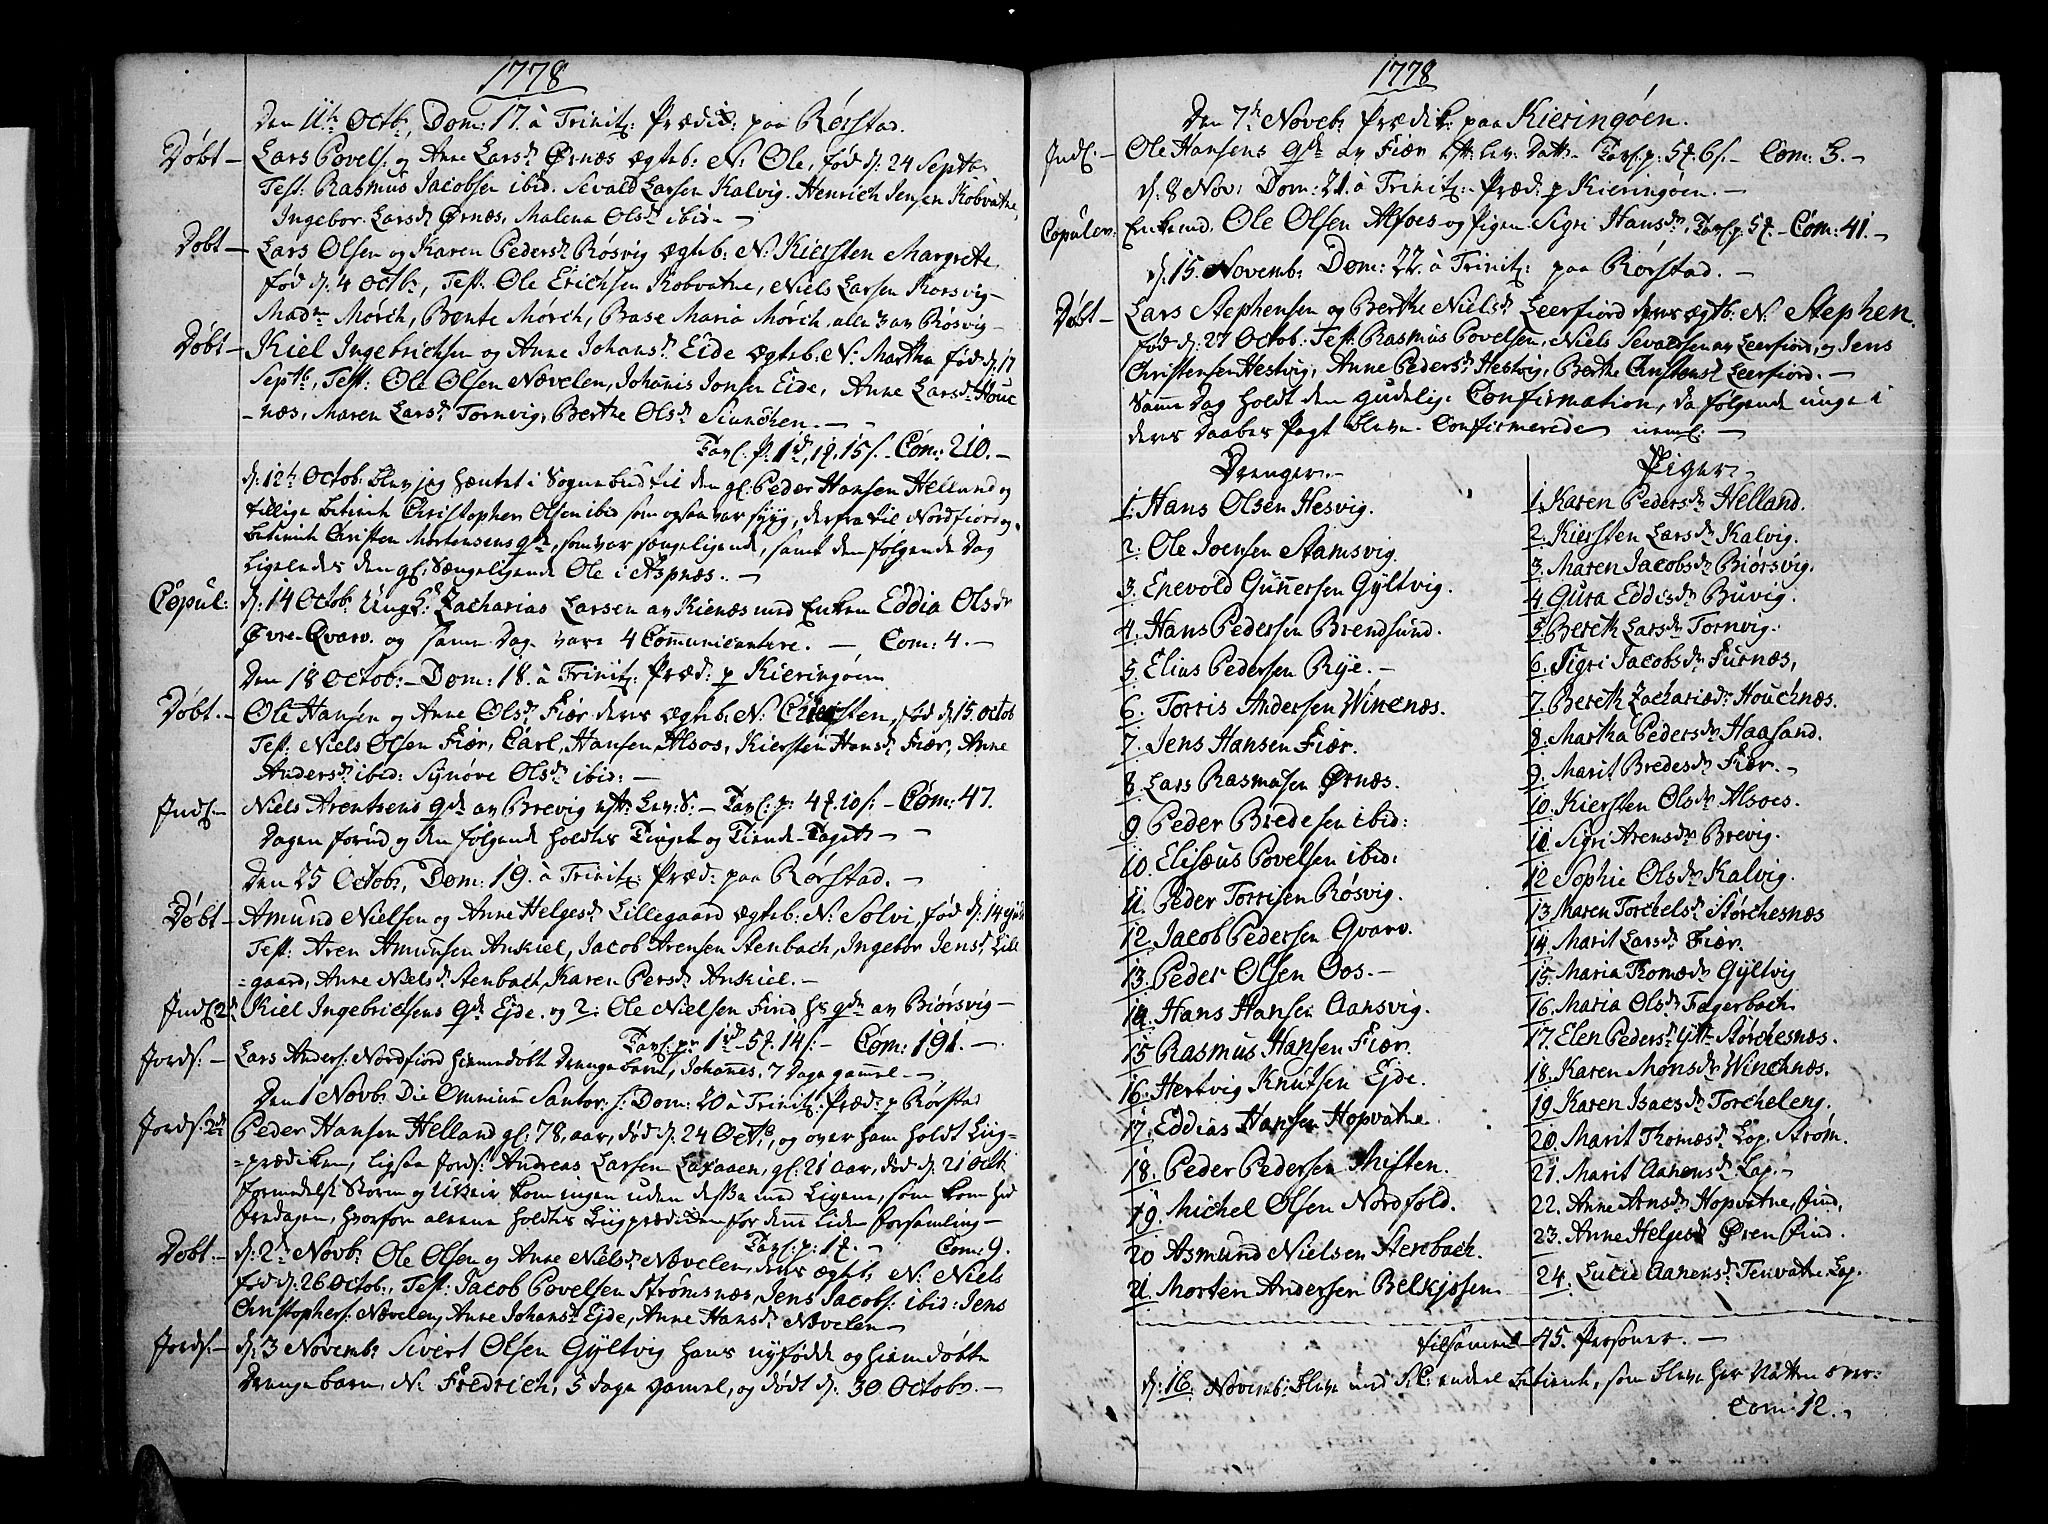 1778
Den 11th Octbr, Dom: 17. à Trinit: Prædic: paa Rørstad.
Døbt – Lars Povels: og Anne Larsdr Ørnæs ægteb: N: Ole, fød d: 24 Septbr
Test: Rasmus Jacobsen ibid. Sevald Larsen Kalvig. Henrich Jensen Kobvatne,
Ingebor Larsdr Ørnæs, Malena Olsdr ibid. –
Døbt – Lars Olsen og Karen Pedersdr Røsvig ægteb: N: Kiersten Margrete,
fød d: 4 Octbr, Test. Ole Erichsen Kobvatne, Niels Larsen Korsvig –
Madm Mørch, Bente Mørch, Base Maria Mørch, alle 3 av Røsvig –
Døbt – Kiel Ingebrichsen og Anne Johansdr Eide ægteb: N: Martha fød d: 17
Septbr, Test: Ole Olsen Nævelen, Johanis Jonsen Eide, Anne Larsdr Houc
-næs, Maren Larsdr Tornvig, Berthe Olsdr –
Tavl: p: 1rd, 1f. 15/. – Com: 210. –
d: 12th Octob: blev jeg hæntet i Sognebud til den gl: Peder Hansen Helland og
tillige betiente Christopher Olsen ibid som ogsaa var syyg, derfra til Nordfiord og
betiente Christen Mortensens qde, som var sængeligende, samt den følgende Dag
ligeledes den gl: Sængeligende Ole i Aspnæs. –
Copul: d: 14 Octobr Ungk: Zacharias Larsen av Kienæs med Enken Eddia Olsdr
Øvre-Qvarv. og samme Dag vare 4 Communicantere. – Com: 4. –
Den 18 Octob: – Dom: 18. à Trinit: Præd: p Kieringøen
Døbt. – Ole Hansen og Anne Olsdr Fiær deres ægteb: N: Kiersten, fød d: 15. Octob
Test: Niels Olsen Fiær, Carl Hansen Alsos, Kiersten Hansdr Fiær, Anne
Andersdr ibid: Synøve Olsdr ibid: –
Indl. – Niels Arentsens qde av Brevig eftr Lev: S: – Tavl: p: 4f. 10/: – Com: 47.
Dagen forud og den følgende holdtes Tinget og Tiende-Taget –
Den 25 Octobr, Dom: 19. à Trinit: Præd: paa Rørstad. –
Døbt – Amund Nielsen og Anne Helgesdr Lillegaard ægteb: N: Sølvi, fød d: 14 ejusd
Test: Aren Amunsen Ankiel, Jacob Arensen Stenbach, Ingebor Jensdr Lill
=gaard, Anne Nielsdr Stenbach, Karen Persdr Ankiel. –
Indl: 2de Kiel Ingebrictsens Qde Ejde. og 2: Ole Nielsen Find hs qde av Biørsvig –
Tavl: p: 1rd – 5f. 14/: – Com: 191. –
Jords: – Lars Anders: Nordfiord hiemedøbt Drengebarn, Johannes, 7 Dage gammel –
Den 1 Novbr Die Omnium Sanctor: s: Dom: 20 à Trinit: Præd: p Rørstad
Jords: 2de Peder Hansen Helland gl: 78, aar, død d: 24 Octbr, og over ham holdt Liig-
=prædiken, ligsaa Jords: Andreas Larsen Laxaaen, gl: 21 aar, død d: 21 Octb
formedelst Storm og Uveir kom ingen uden deße med Ligene, som kom hid
Fredagen, hvorfor alene holdtes Liigprædiken for denne liden Forsamling –
Tavl: p: 1f. – Com: 9.
Døbt. – d: 2de Novbr. Ole Olsen og Anne Nielsdr Nævelen, deres ægteb: N: Niels
fød d: 26 Octob:, Test: Jacob Povelsen Strømsnæs, Jens Jacobs: ibid: Jens
Christophers: Nævelen, Anne Johansdr Ejde, Anne Hansdr Nævelen –
Jords: – d: 3 Novembr Sivert Olsen Gyltvig hans nyfødde og hiemedøbte
Drengebarn, N: Fredrich, 5 dage gamel, og dødt d: 30 Octobr. –
1778
Den 7de Novebr Prædik: paa Kieringøen.
Indl. – Ole Hansens qde av Fiær eft: lev: Datt. Tavl: p: 5f. 6/. – Com: 3. –
d: 8 Nov: Dom: 21. à Trinit: Præd: p Kieringøen. –
Copulev: Enkemd. Ole Olsen Alsoes og Pigen Sigri Hansdr, Tavl: p: 5f. – Com: 41. –
d: 15. Novemb: Dom: 22. à Trinit: paa Rørstad. –
Døbt – Lars Stephensen og Berthe Nielsdr Leerfiord deres ægteb: N: Stephen.
fød d: 27 Octob: Test: Rasmus Povelsen, Niels Sevaldsen av Leerfiord, og Jens
Christensen Hestvig, Anne Pedersdr Hestvig, Berthe Christensdr Leerfiord. –
Samme Dag holdt den gudelige Confirmation, da følgende unge i
deres Daabes Pagt bleve Confirmerede neml: –
Drenger. –
1. Hans Olsen Hesvig.
2. Ole Joensen Stamsvig.
3. Enevold Gunnersen Gyltvig.
4. Hans Pedersen Brendsund.
5. Elias Pedersen Rye. –
6. Torris Andersen Winenæs.
7. Jens Hansen Fiær.
8 Lars Rasmusen Ørnæs.
9 Peder Bredesen ibid:
10. Elisæus Povelsen ibid:
11. Peder Torrisen Røsvig.
12. Jacob Pedersen Qvarv.
13. Peder Olsen Oos. –
14. Hans Hansen Aansvig.
15 Rasmus Hansen Fiær.
16. Hertvig Knutsen Ejde.
17. Eddias Hansen Hopvatne
18. Peder Pedersen Misten.
19. Michel Olsen Nordfold.
20 Asmund Nielsen Stenbach.
21. Morten Andersen Belkjssen
Piger –
1. Karen Pedersdr Helland.
2. Kiersten Larsdr Kalvig.
3. Maren Jacobsdr Biørsvig.
4. Gura Eddisdr Buvig.
5. Bereth Larsdr Tornvig.
6. Sigri Jacobsdr Furnæs,
7. Bereth Zachariædr Houchnæs.
8. Martha Pedersdr Haasand.
9. Marit Bredesdr Fiær. –
10. Kiersten Olsdr Alsoes.
11. Sigri Arensdr Brevig.
12 Sophie Olsdr Kalvig.
13 Maren Torchelsdr Størchesnæs
14 Marit Larsdr Fiær.
15. Maria Thomædr Gyltvig
16. Maria Olsdr Fagerbach.
17. Elen Pedersdr Størchesnæs.
18. Karen Monsdr Winchnæs.
19 Karen Isacsdr Torcheleng.
20. Marit Thomæsdr Lap. Strøm.
21. Marit Aanensdr Lap. –
22. Anne Arnsdr Hopvatne, Find,
23. Anne Helgesdr Øren Find.
24. Lucie Aanensdr Tenvatne Lap.
tilsamme 45. Personer. –
d: 16. Novemb: bleve endel andre betient, som bleve her Natten over:
Com: 12. –